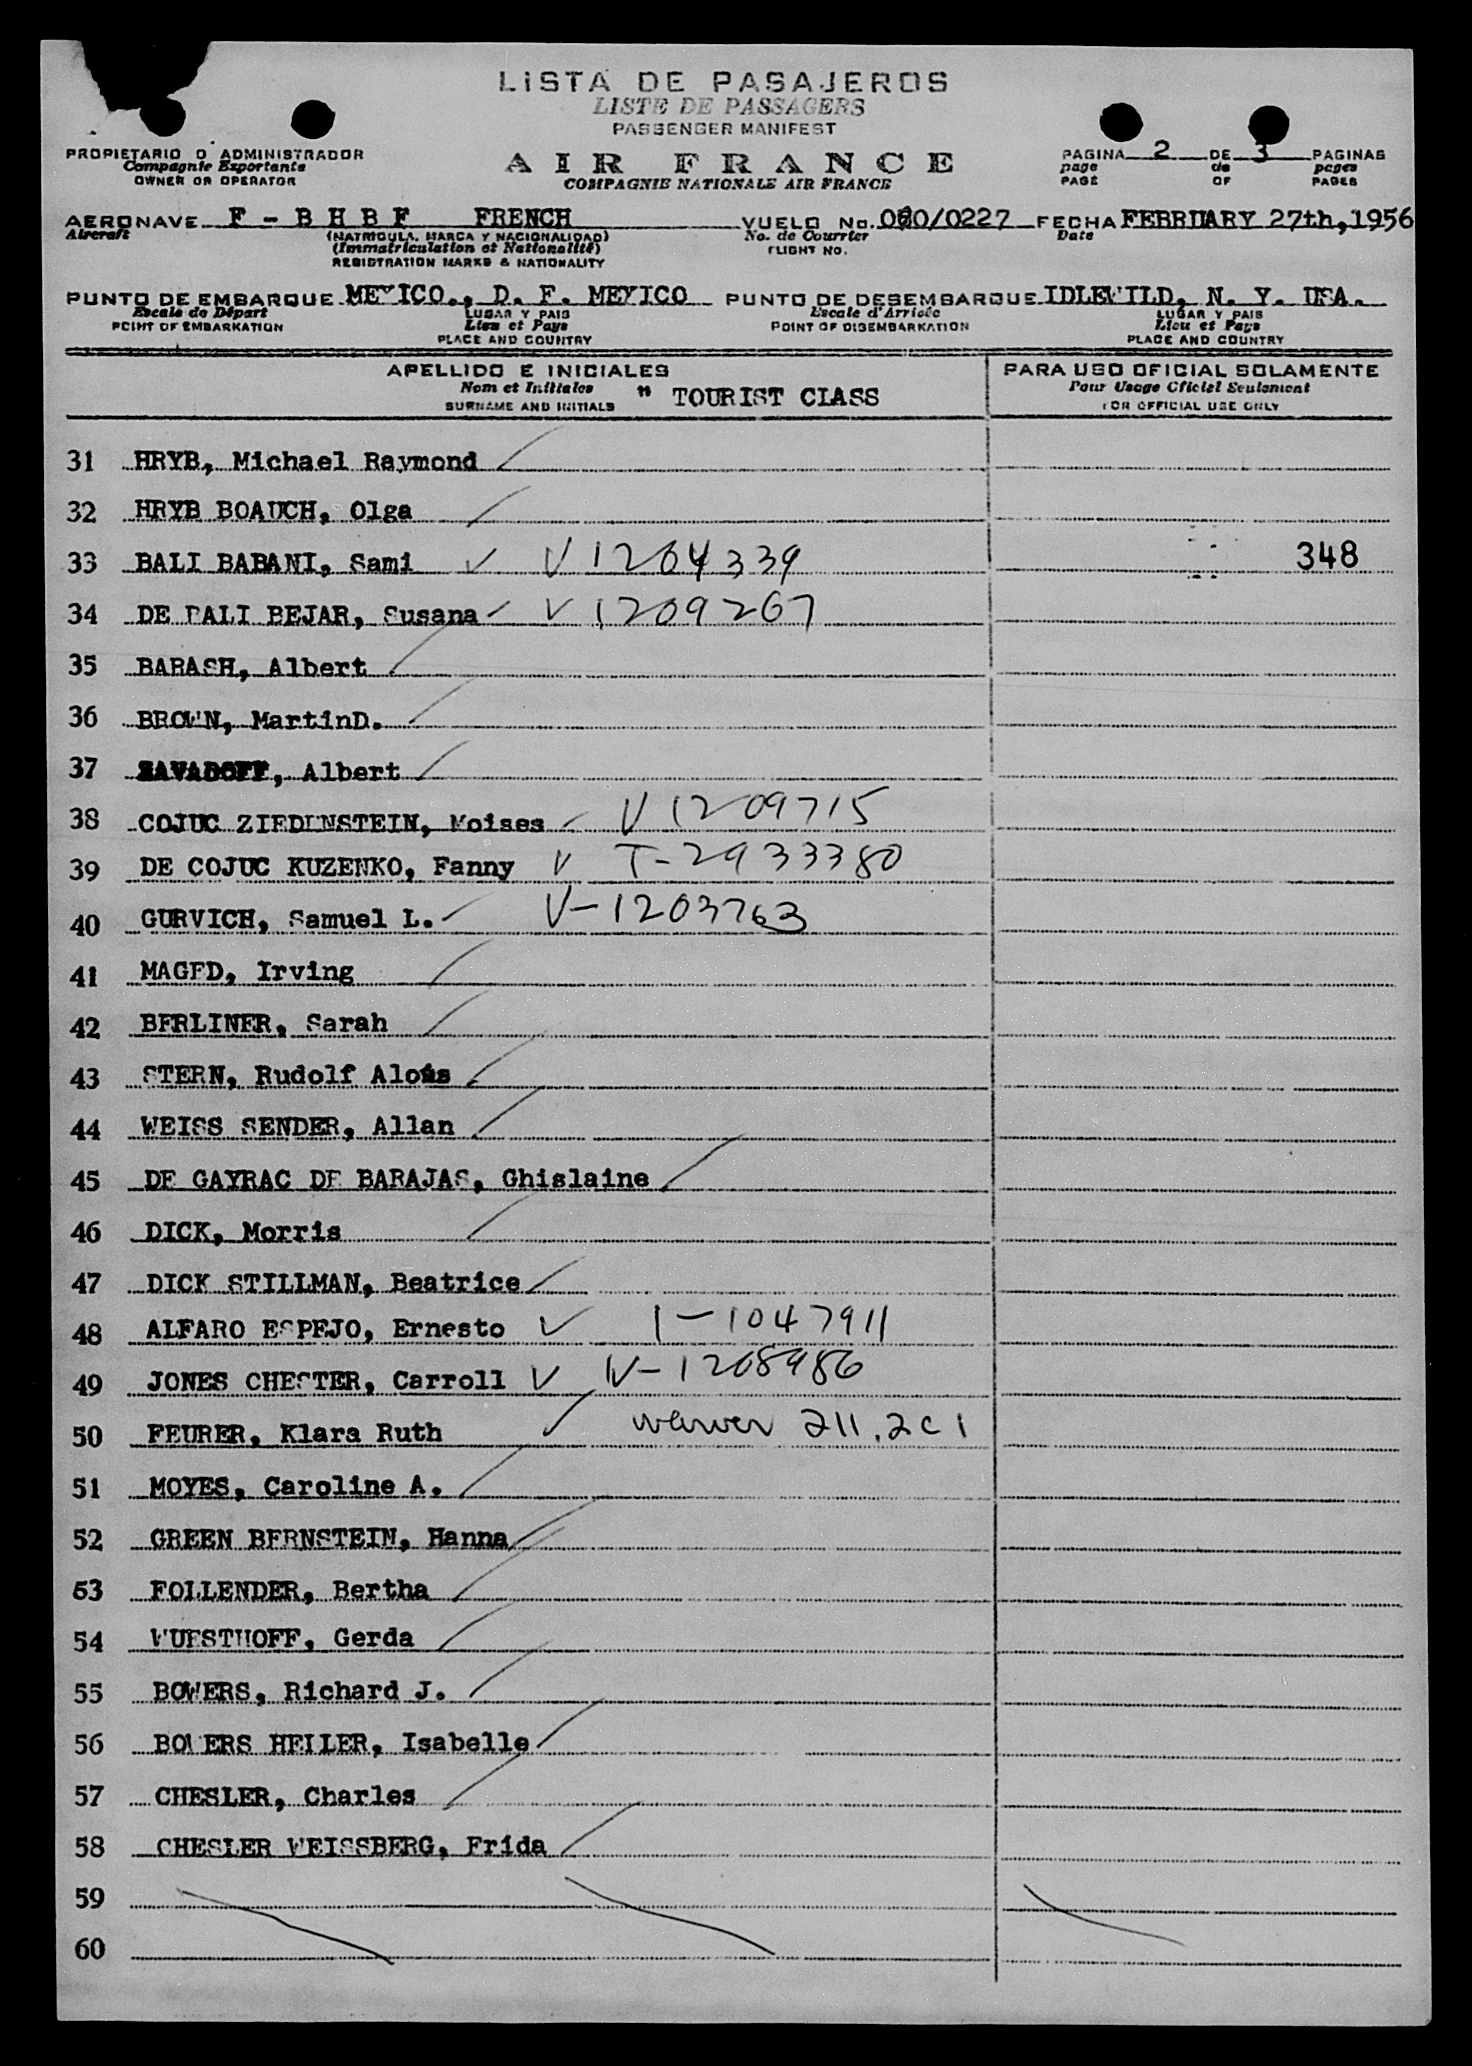 LISTA DE PASAJEROS
LISTE DE PASSAGERS
PASSENGER MANIFEST
PROPIETARIO O ADMINISTRADOR
Compagnie Exportante
OWNER OR OPERATOR
AIR FRANCE
COMPAGNIE NATIONALE AIR FRANCE
PAGINA 2 DE 3 PAGINAS
page de pages
PAGE OF PAGES
AERONAVE F - B H B F FRENCH VUELO No. 0/0227 FECHA FEBRUARY 27th, 1956
Aircraft (MATRICULA, MARCA Y NACIONALIDAD) No. de Courrier Date
(Immatriculation et Nationalité) FLIGHT NO.
REGISTRATION MARKS & NATIONALITY
PUNTO DE EMBARQUE MEXICO., D. F. MEXICO PUNTO DE DESEMBARQUE IDLEWILD, N. Y. USA.
Escale de Départ LUGAR Y PAIS Escale d'Arrivée LUGAR Y PAIS
POINT OF EMBARKATION Lieu et Pays POINT OF DISEMBARKATION Lieu et Pays
PLACE AND COUNTRY PLACE AND COUNTRY
APELLIDO E INICIALES PARA USO OFICIAL SOLAMENTE
Nom et Initiales " TOURIST CLASS Pour Usage Officiel Seulement
SURNAME AND INITIALS FOR OFFICIAL USE ONLY
31 HRYB, Michael Raymond
32 HRYB BOAUCH, Olga
33 BALI BABANI, Sami V 1204339 348
34 DE BALI BEJAR, Susana V 1209267
35 BARASH, Albert
36 BROWN, MartinD.
37 ZAVADOFF, Albert
38 COJUC ZIEDENSTEIN, Moises V 1209715
39 DE COJUC KUZENKO, Fanny T-2933380
40 GURVICH, Samuel L. V-1203763
41 MAGED, Irving
42 BERLINER, Sarah
43 STERN, Rudolf Alois
44 WEISS SENDER, Allan
45 DE GAYRAC DE BARAJAS, Ghislaine
46 DICK, Morris
47 DICK STILLMAN, Beatrice
48 ALFARO ESPEJO, Ernesto 1-1047911
49 JONES CHESTER, Carroll V-1208986
50 FEURER, Klara Ruth waiver 211.2c1
51 MOYES, Caroline A.
52 GREEN BERNSTEIN, Hanna
53 FOLLENDER, Bertha
54 WUESTHOFF, Gerda
55 BOWERS, Richard J.
56 BOWERS HEILER, Isabelle
57 CHESLER, Charles
58 CHESLER WEISSBERG, Frida
59
60